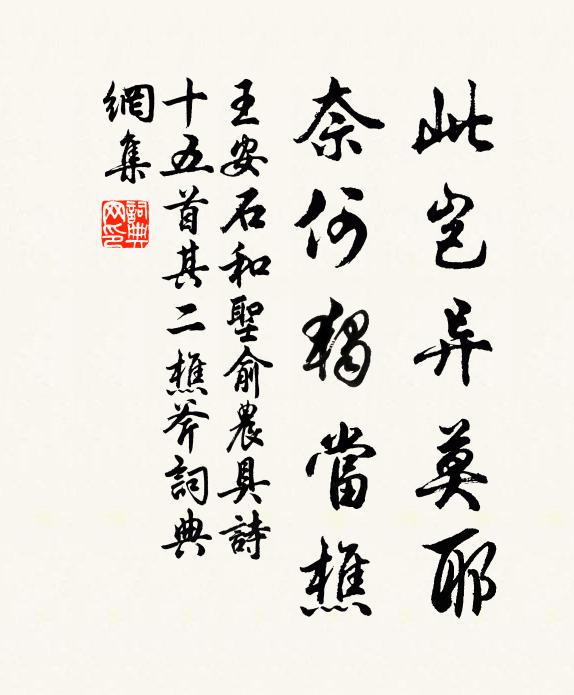 此岂异莫耶
奈何獨當樵
王安石和聖俞農具詩
十五首其二樵斧詞典
網集
詞典网印